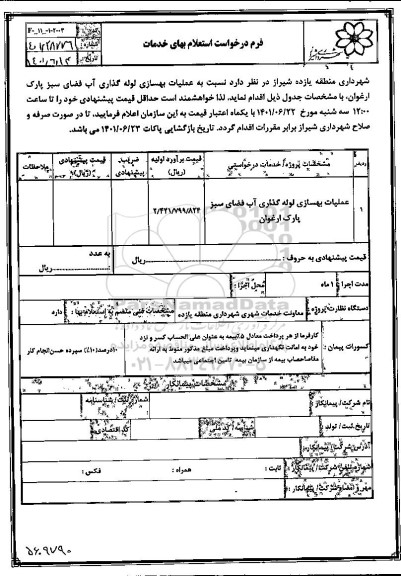 فرم درخواست استعلام بهای خدمات
شهرداری منطقه یازده شیراز در نظر دارد نسبت به عملیات بهسازی لوله گذاری آب فضای سبز پارک
ارغوان، با مشخصات جدول ذیل اقدام نماید. لذا خواهشمند است حداقل قیمت پیشنهادی خود را تا ساعت
۱۲:۰۰ سه شنبه مورخ ۱۴۰۱/۰۶/۲۲ با یکماه اعتبار قیمت به این سازمان اعلام فرمایید، تا در صورت صرفه و
صلاح شهرداری شیراز برابر مقررات اقدام گردد. تاریخ بازگشایی پاکات ۱۴۰۱/۰۶/۲۳ می باشد.
ردیف مشخصات پروژه/ خدمات درخواستی قیمت برآورد اولیه (ریال) ضریب پیشنهادی قیمت پیشنهادی (ریال) ملاحظات
۱ عملیات بهسازی لوله گذاری آب فضای سبز پارک ارغوان ۲/۴۲۱/۷۹۹/۸۲۴
قیمت پیشنهادی به حروف : ریال به عدد : ریال
مدت اجرا : ۱ ماه محل اجرا :
دستگاه نظارت پروژه : معاونت خدمات شهری شهرداری منطقه یازده مشخصات فنی منضم به استعلام بها : دارد
کسورات پیمان : کارفرما از هر پرداخت معادل ۵٪ بیمه به عنوان علی الحساب کسر و نزد
خود به امانت نگهداری مینماید و پرداخت مبلغ مذکور منوط به ارائه
مفاصاحساب بیمه از سازمان بیمه تامین اجتماعی میباشد.
۱۰درصد(۱۰٪) سپرده حسن انجام کار
مشخصات پیمانکار
نام شرکت/ پیمانکار : شماره ثبت/ شناسنامه :
تاریخ ثبت/ تولد : شناسه/ کد ملی : کد اقتصادی :
آدرس شرکت/ پیمانکار :
شماره تلفن شرکت/ پیمانکار : ثابت : همراه : فکس :
مهر و امضاء شرکت/ پیمانکار :
۵۶۰۹۷۹۰